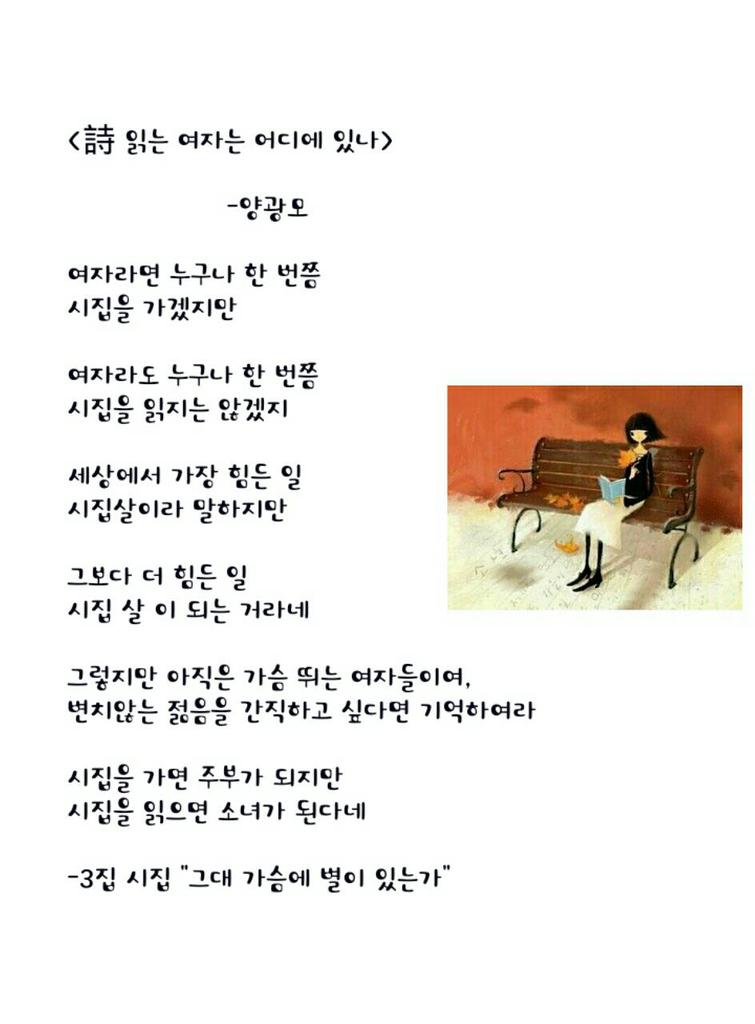 <詩 읽는 여자는 어디에 있나>
-양광모
여자라면 누구나 한 번쯤
시집을 가겠지만
여자라도 누구나 한 번쯤
시집을 읽지는 않겠지
세상에서 가장 힘든 일
시집살이라 말하지만
그보다 더 힘든 일
시집 살 이 되는 거라네
그렇지만 아직은 가슴 뛰는 여자들이여,
변치않는 젊음을 간직하고 싶다면 기억하여라
시집을 가면 주부가 되지만
시집을 읽으면 소녀가 된다네
-3집 시집 "그대 가슴에 별이 있는가"